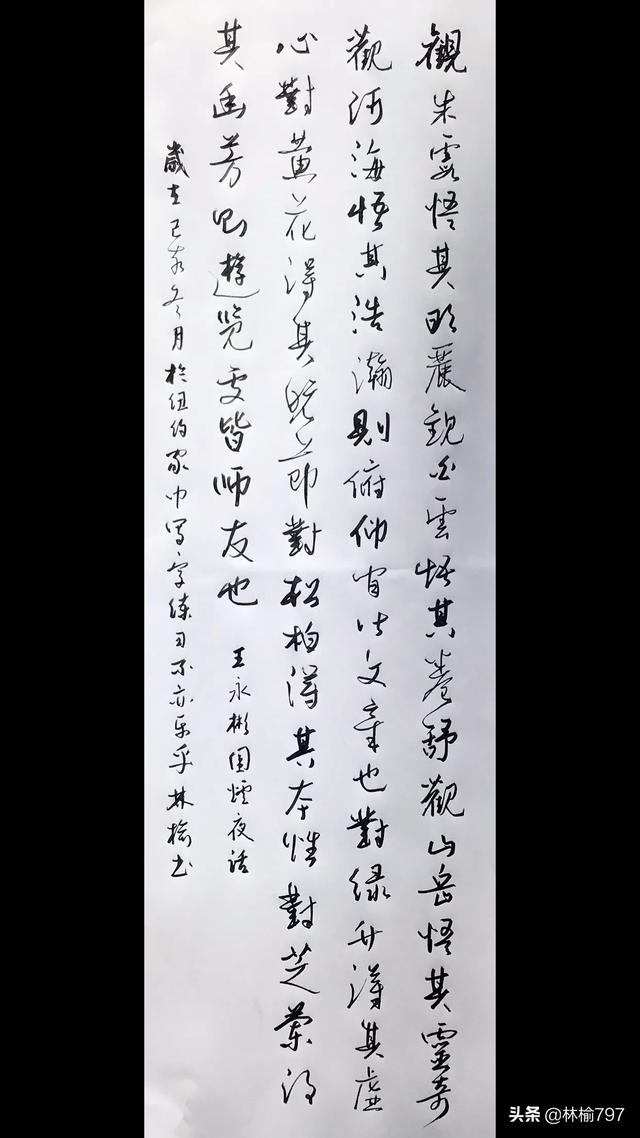 觀朱霞悟其明麗觀白雲悟其卷舒觀山岳悟其靈奇
觀河海悟其浩瀚則俯仰間皆文章也對绿竹得其虛
心對黄花得其晚節對松柏得其本性對芝蘭得
其幽芳則遊览處皆师友也
王永彬围爐夜话
歲在己亥冬月於纽约家中写字练习不亦乐乎林榆书
头条 @林榆797